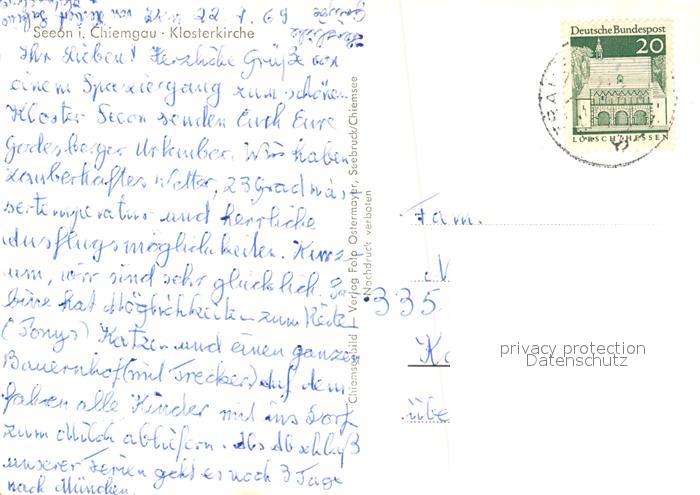 22.7.69
Herzliche
Grüße
Seeon i. Chiemgau · Klosterkirche
Ihr Lieben! Herzliche Grüße von
einem Spaziergang zum schönen
Kloster Seeon senden Euch Eure
Godesberger Urlauber. Wir haben
zauberhaftes Wetter, 23 Grad Was
sertemperatur und herrliche
Ausflugsmöglichkeiten. Kurz-
um, wir sind sehr glücklich. Sa-
bine hat Möglichkeiten zum Reiten
(Ponys) Katzen und einen ganzen
Bauernhof (mit Trecker) auf dem
fahren alle Kinder mit ins Dorf
zum Milch abliefern. Als Abschluß
unserer Ferien geht es noch 3 Tage
nach München.
Chiemseebild — Verlag Foto Ostermayer, Seebruck/Chiemsee
Nachdruck verboten
Deutsche Bundespost
20
LORSCH/HESSEN
Fam.
335
Ko
übe
privacy protection
Datenschutz